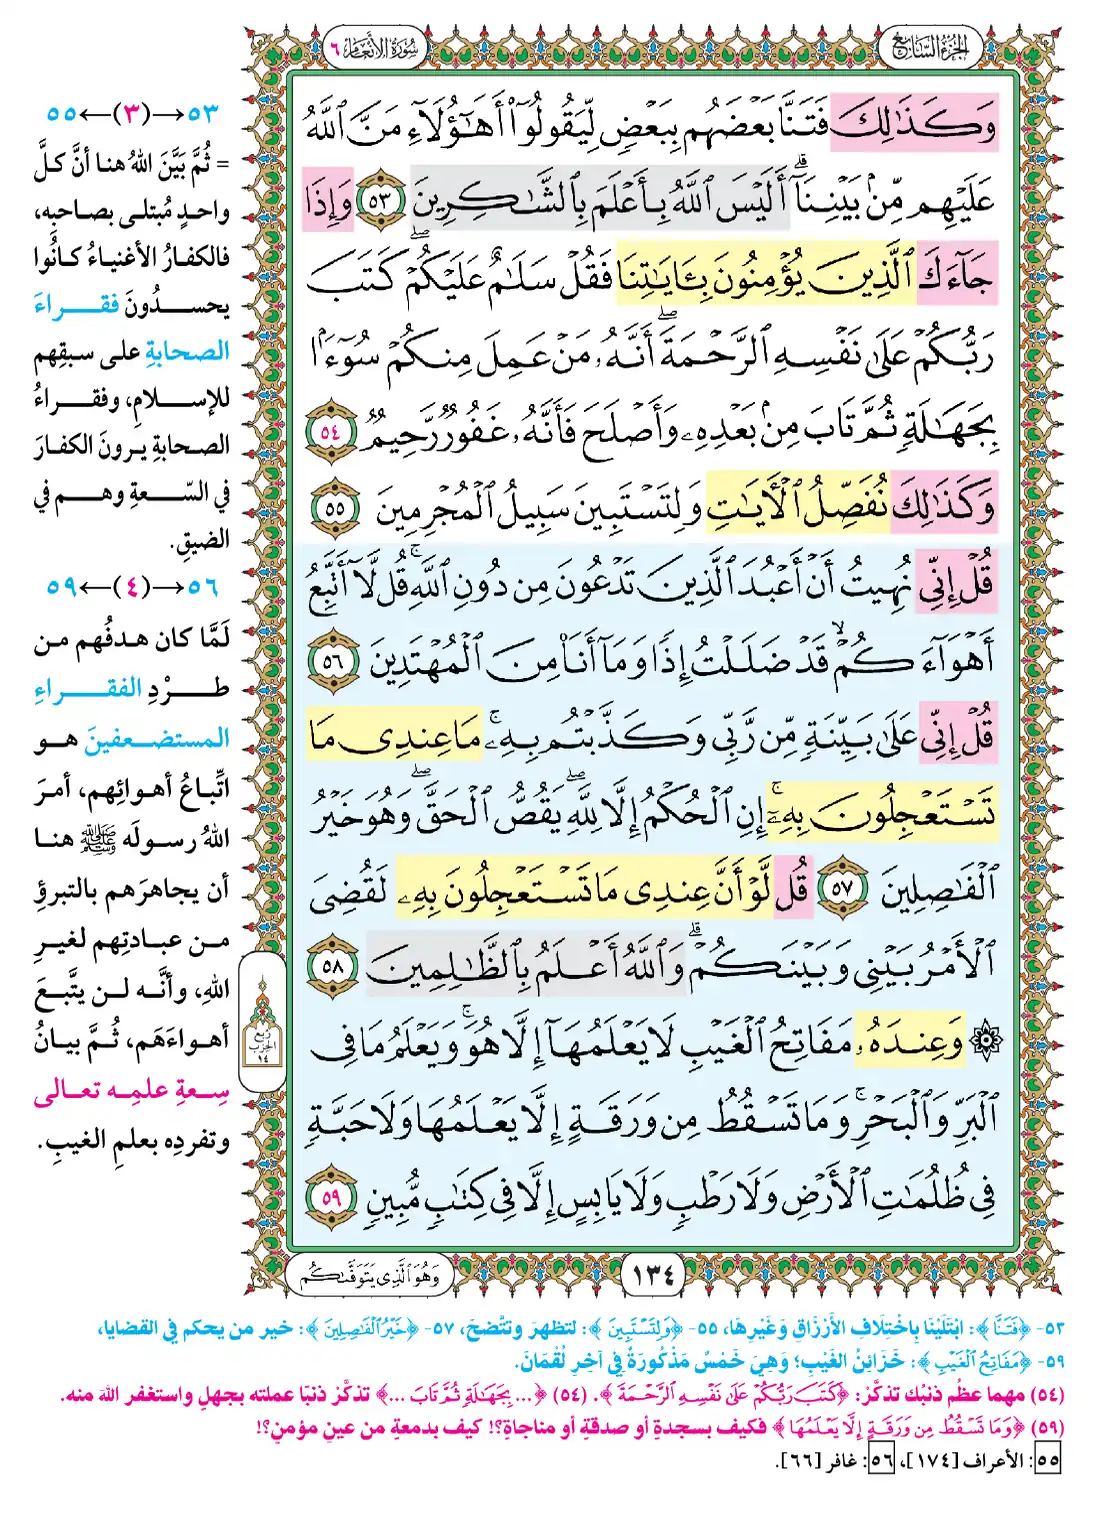 الجزء السابع
سورة الأنعام ٦
وَكَذَٰلِكَ فَتَنَّا بَعْضَهُم بِبَعْضٍ لِّيَقُولُوٓا۟ أَهَـٰٓؤُلَآءِ مَنَّ ٱللَّهُ
عَلَيْهِم مِّنۢ بَيْنِنَآ ۗ أَلَيْسَ ٱللَّهُ بِأَعْلَمَ بِٱلشَّـٰكِرِينَ ٥٣ وَإِذَا
جَآءَكَ ٱلَّذِينَ يُؤْمِنُونَ بِـَٔايَـٰتِنَا فَقُلْ سَلَـٰمٌ عَلَيْكُمْ ۖ كَتَبَ
رَبُّكُمْ عَلَىٰ نَفْسِهِ ٱلرَّحْمَةَ ۖ أَنَّهُۥ مَنْ عَمِلَ مِنكُمْ سُوٓءًۢا
بِجَهَـٰلَةٍ ثُمَّ تَابَ مِنۢ بَعْدِهِۦ وَأَصْلَحَ فَأَنَّهُۥ غَفُورٌ رَّحِيمٌ ٥٤
وَكَذَٰلِكَ نُفَصِّلُ ٱلْـَٔايَـٰتِ وَلِتَسْتَبِينَ سَبِيلُ ٱلْمُجْرِمِينَ ٥٥
قُلْ إِنِّى نُهِيتُ أَنْ أَعْبُدَ ٱلَّذِينَ تَدْعُونَ مِن دُونِ ٱللَّهِ ۚ قُل لَّآ أَتَّبِعُ
أَهْوَآءَكُمْ ۙ قَدْ ضَلَلْتُ إِذًا وَمَآ أَنَا۠ مِنَ ٱلْمُهْتَدِينَ ٥٦
قُلْ إِنِّى عَلَىٰ بَيِّنَةٍ مِّن رَّبِّى وَكَذَّبْتُم بِهِۦ ۚ مَا عِندِى مَا
تَسْتَعْجِلُونَ بِهِۦٓ ۚ إِنِ ٱلْحُكْمُ إِلَّا لِلَّهِ ۖ يَقُصُّ ٱلْحَقَّ ۖ وَهُوَ خَيْرُ
ٱلْفَـٰصِلِينَ ٥٧ قُل لَّوْ أَنَّ عِندِى مَا تَسْتَعْجِلُونَ بِهِۦ لَقُضِىَ
ٱلْأَمْرُ بَيْنِى وَبَيْنَكُمْ ۗ وَٱللَّهُ أَعْلَمُ بِٱلظَّـٰلِمِينَ ٥٨
۞ وَعِندَهُۥ مَفَاتِحُ ٱلْغَيْبِ لَا يَعْلَمُهَآ إِلَّا هُوَ ۚ وَيَعْلَمُ مَا فِى
ٱلْبَرِّ وَٱلْبَحْرِ ۚ وَمَا تَسْقُطُ مِن وَرَقَةٍ إِلَّا يَعْلَمُهَا وَلَا حَبَّةٍ
فِى ظُلُمَـٰتِ ٱلْأَرْضِ وَلَا رَطْبٍ وَلَا يَابِسٍ إِلَّا فِى كِتَـٰبٍ مُّبِينٍ ٥٩
١٣٤
وَهُوَ ٱلَّذِى يَتَوَفَّىٰكُم
ربع
الحزب
١٤
٥٣→(٣)←٥٥
= ثُمَّ بَيَّنَ اللهُ هنا أنَّ كلَّ
واحدٍ مُبتلى بصاحبِه،
فالكفارُ الأغنياءُ كانُوا
يحسدُونَ فقراءَ
الصحابةِ على سبقِهم
للإسلامِ، وفقراءُ
الصحابةِ يرونَ الكفارَ
في السّعةِ وهم في
الضيقِ.
٥٦→(٤)←٥٩
لَمَّا كان هدفُهم من
طرْدِ الفقراءِ
المستضعفينَ هو
اتِّباعُ أهوائِهم، أمرَ
اللهُ رسولَه ﷺ هنا
أن يجاهرَهم بالتبرؤِ
من عبادتِهم لغيرِ
اللهِ، وأنَّه لن يتَّبعَ
أهواءَهم، ثُمَّ بيانُ
سِعةِ علمِه تعالى
وتفردِه بعلمِ الغيبِ.
٥٣- ﴿فَتَنَّا﴾: ابْتَلَيْنَا بِاخْتِلَافِ الأَرْزَاقِ وَغَيْرِهَا، ٥٥- ﴿وَلِتَسْتَبِينَ﴾: لتظهرَ وتتَّضحَ، ٥٧- ﴿خَيْرُ ٱلْفَـٰصِلِينَ﴾: خير من يحكم في القضايا،
٥٩- ﴿مَفَاتِحُ ٱلْغَيْبِ﴾: خَزَائِنُ الغَيْبِ؛ وَهِيَ خَمْسٌ مَذْكُورَةٌ فِي آخِرِ لُقْمَانَ.
(٥٤) مهما عظُم ذنبُك تذكَّر: ﴿كَتَبَ رَبُّكُمْ عَلَىٰ نَفْسِهِ ٱلرَّحْمَةَ﴾. (٥٤) ﴿... بِجَهَـٰلَةٍ ثُمَّ تَابَ ...﴾ تذكَّر ذنبًا عملته بجهلٍ واستغفر الله منه.
(٥٩) ﴿وَمَا تَسْقُطُ مِن وَرَقَةٍ إِلَّا يَعْلَمُهَا﴾ فكيف بسجدةٍ أو صدقةٍ أو مناجاةٍ؟! كيف بدمعةٍ من عينِ مؤمنٍ؟!
٥٥: الأعراف [١٧٤]، ٥٦: غافر [٦٦].